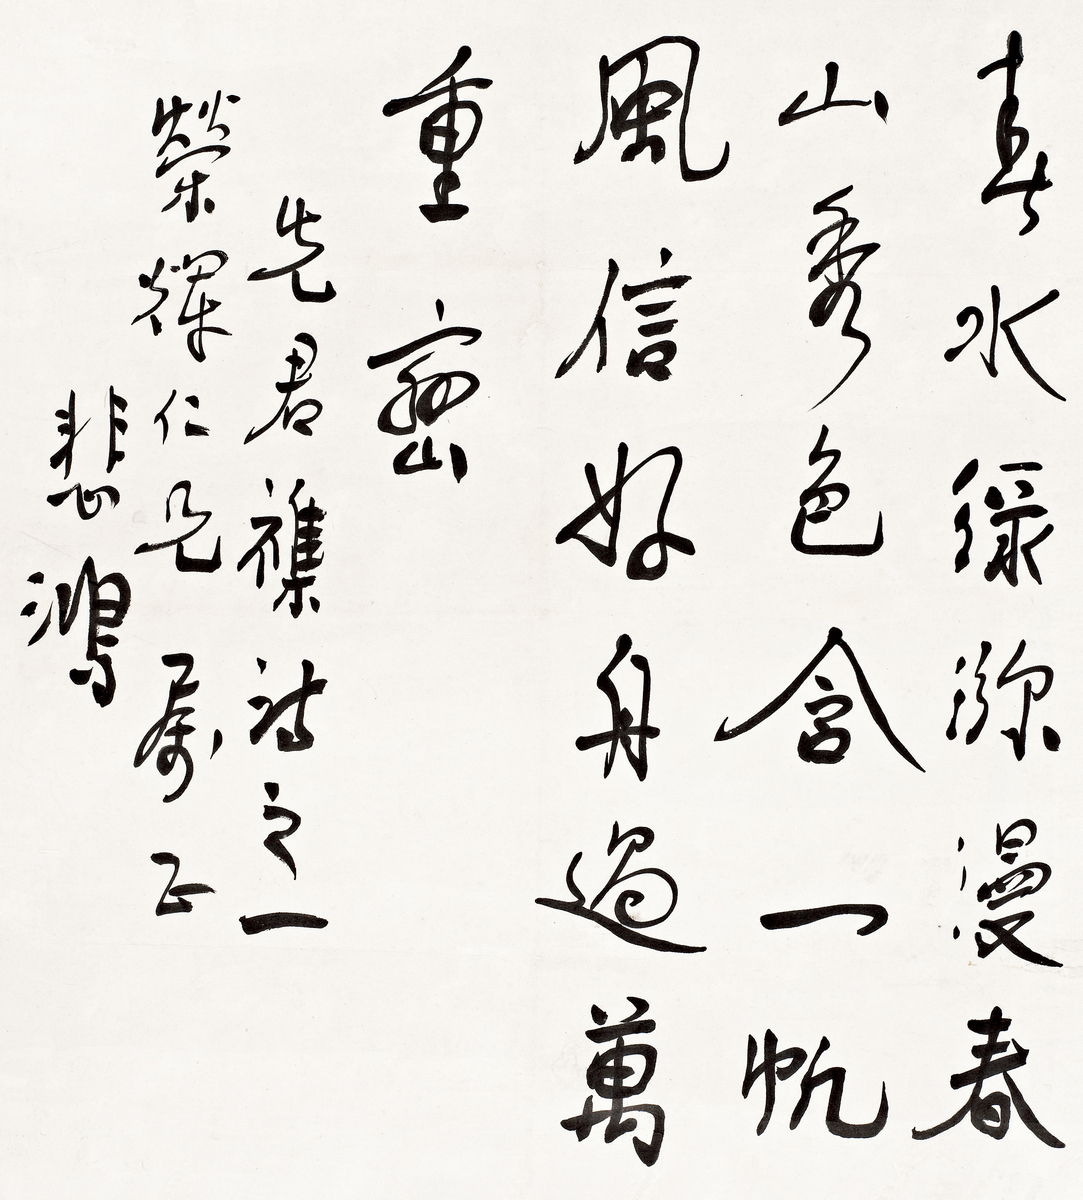 春水綠瀰漫春
山秀色含一帆
風信好舟過萬
重巒
先君襍詩之一
榮輝仁兄屬正
悲鴻